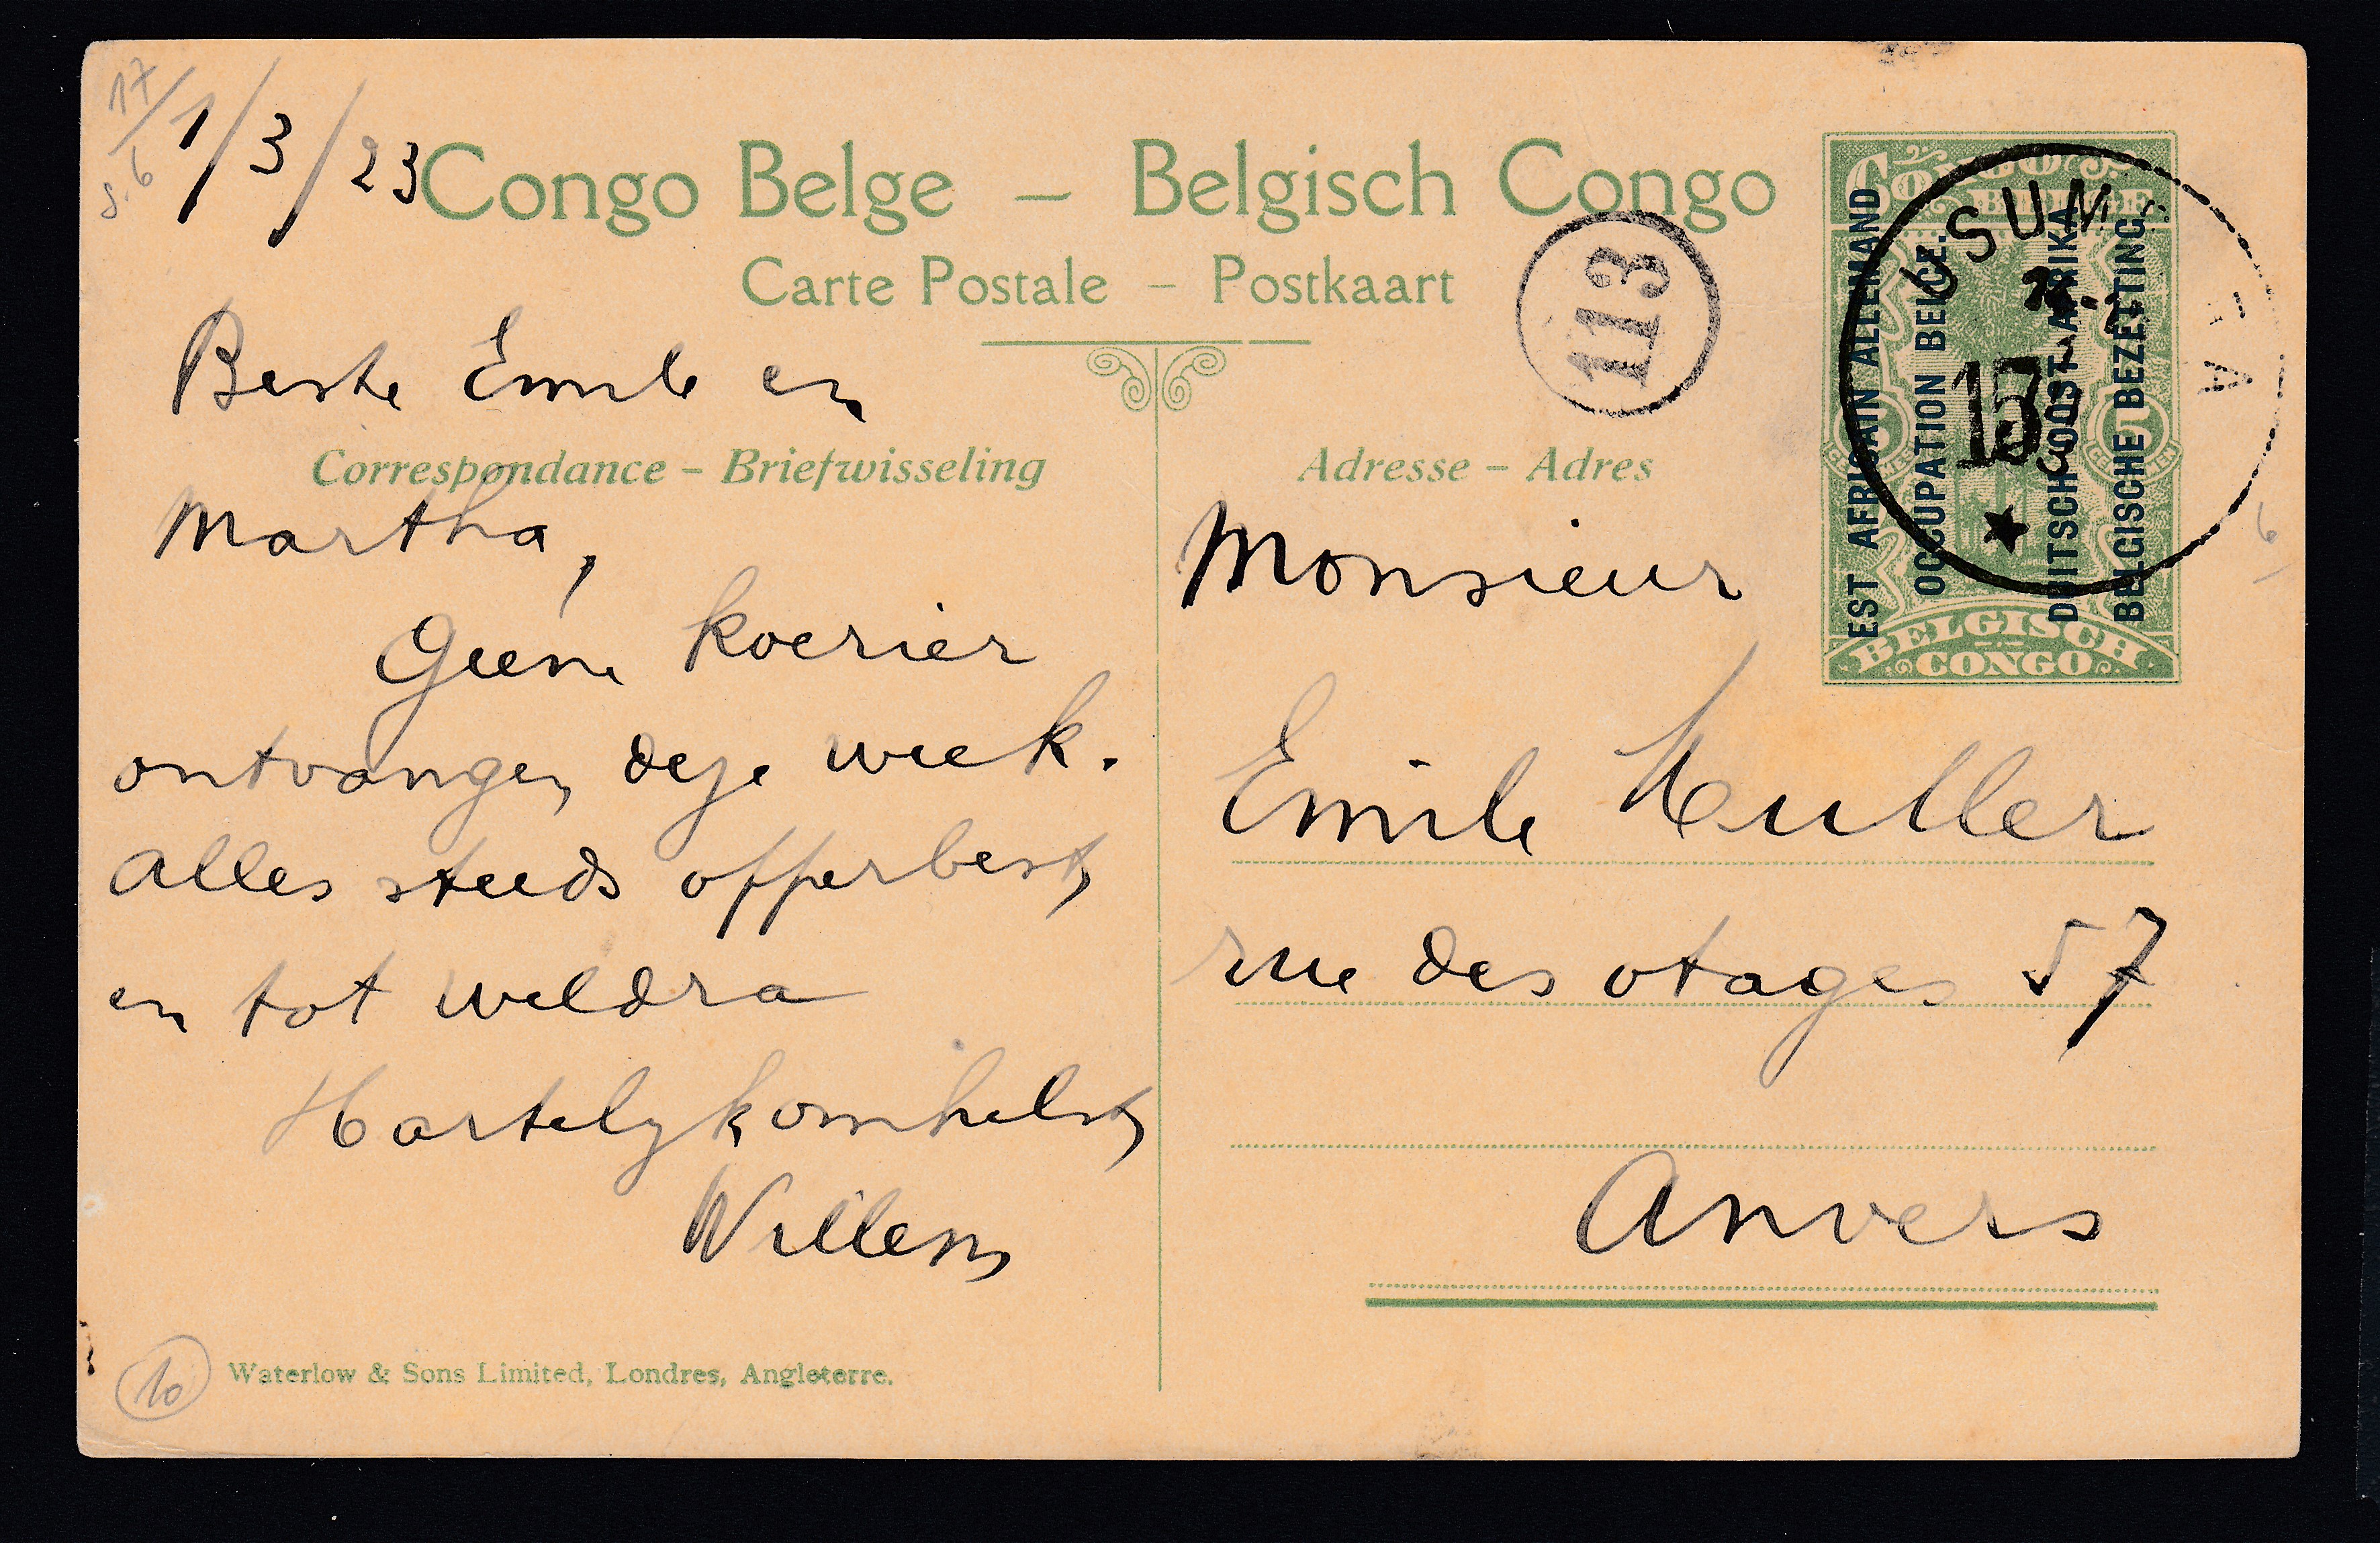 17/5.6
1/3/23
Congo Belge – Belgisch Congo
Carte Postale – Postkaart
113
CONGO BELGE
EST AFRICAIN ALLEMAND
OCCUPATION BELGE.
DUITSCH OOST AFRIKA
BELGISCHE BEZETTING.
BELGISCH
CONGO
USUM
Beste Emile en
Correspondance – Briefwisseling
Martha,
Geene koerier
ontvangen deze week.
Alles steeds opperbest,
en tot weldra
Hartelyk omhelst,
Willem
Adresse – Adres
Monsieur
Emile Muller
rue des otages 57
Anvers
10
Waterlow & Sons Limited, Londres, Angleterre.